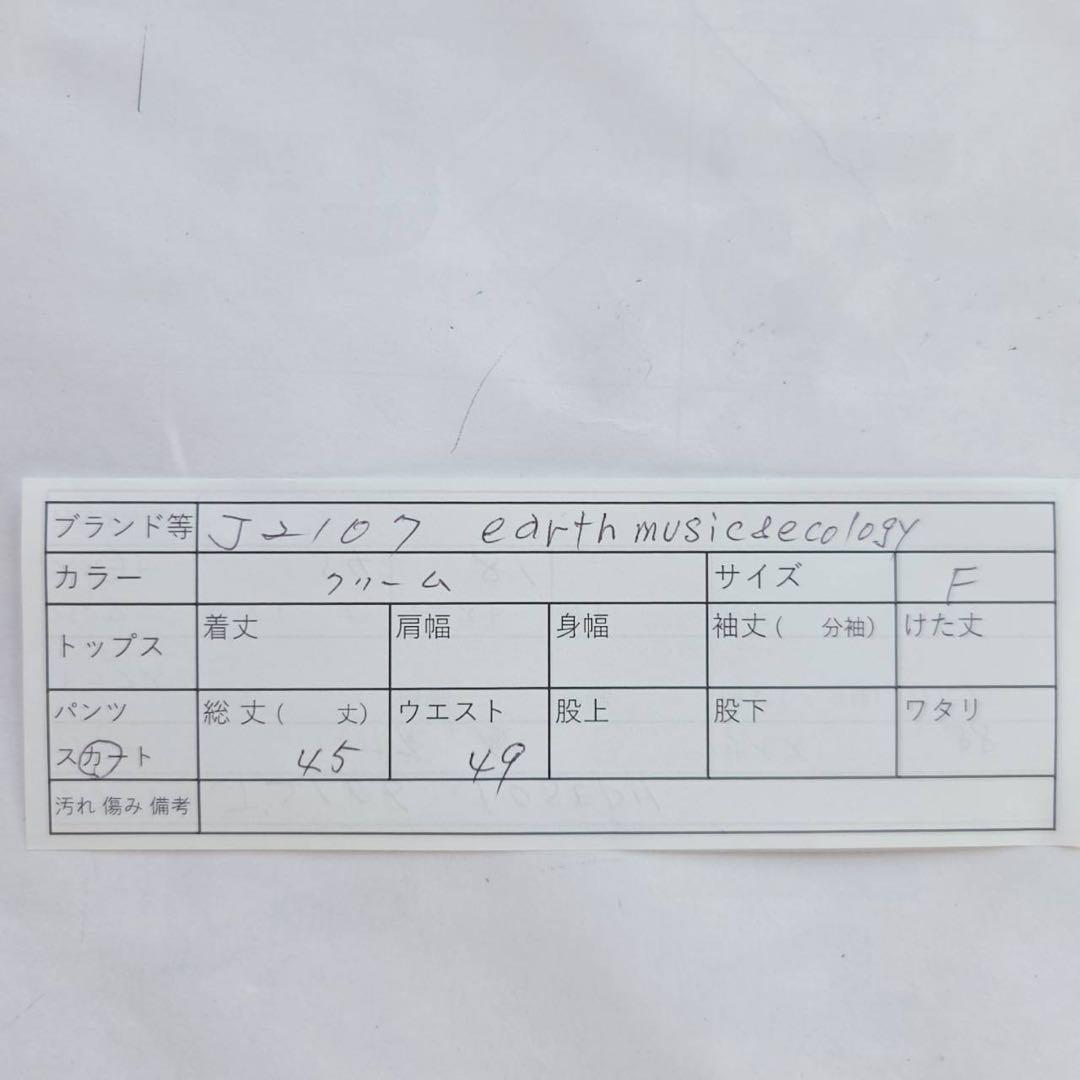 ブランド等 J2107 earth music&ecology
カラー クリーム サイズ F
トップス 着丈 肩幅 身幅 袖丈( 分袖) けた丈
パンツ 総丈( 丈) ウエスト 股上 股下 ワタリ
スカート 45 49
汚れ 傷み 備考